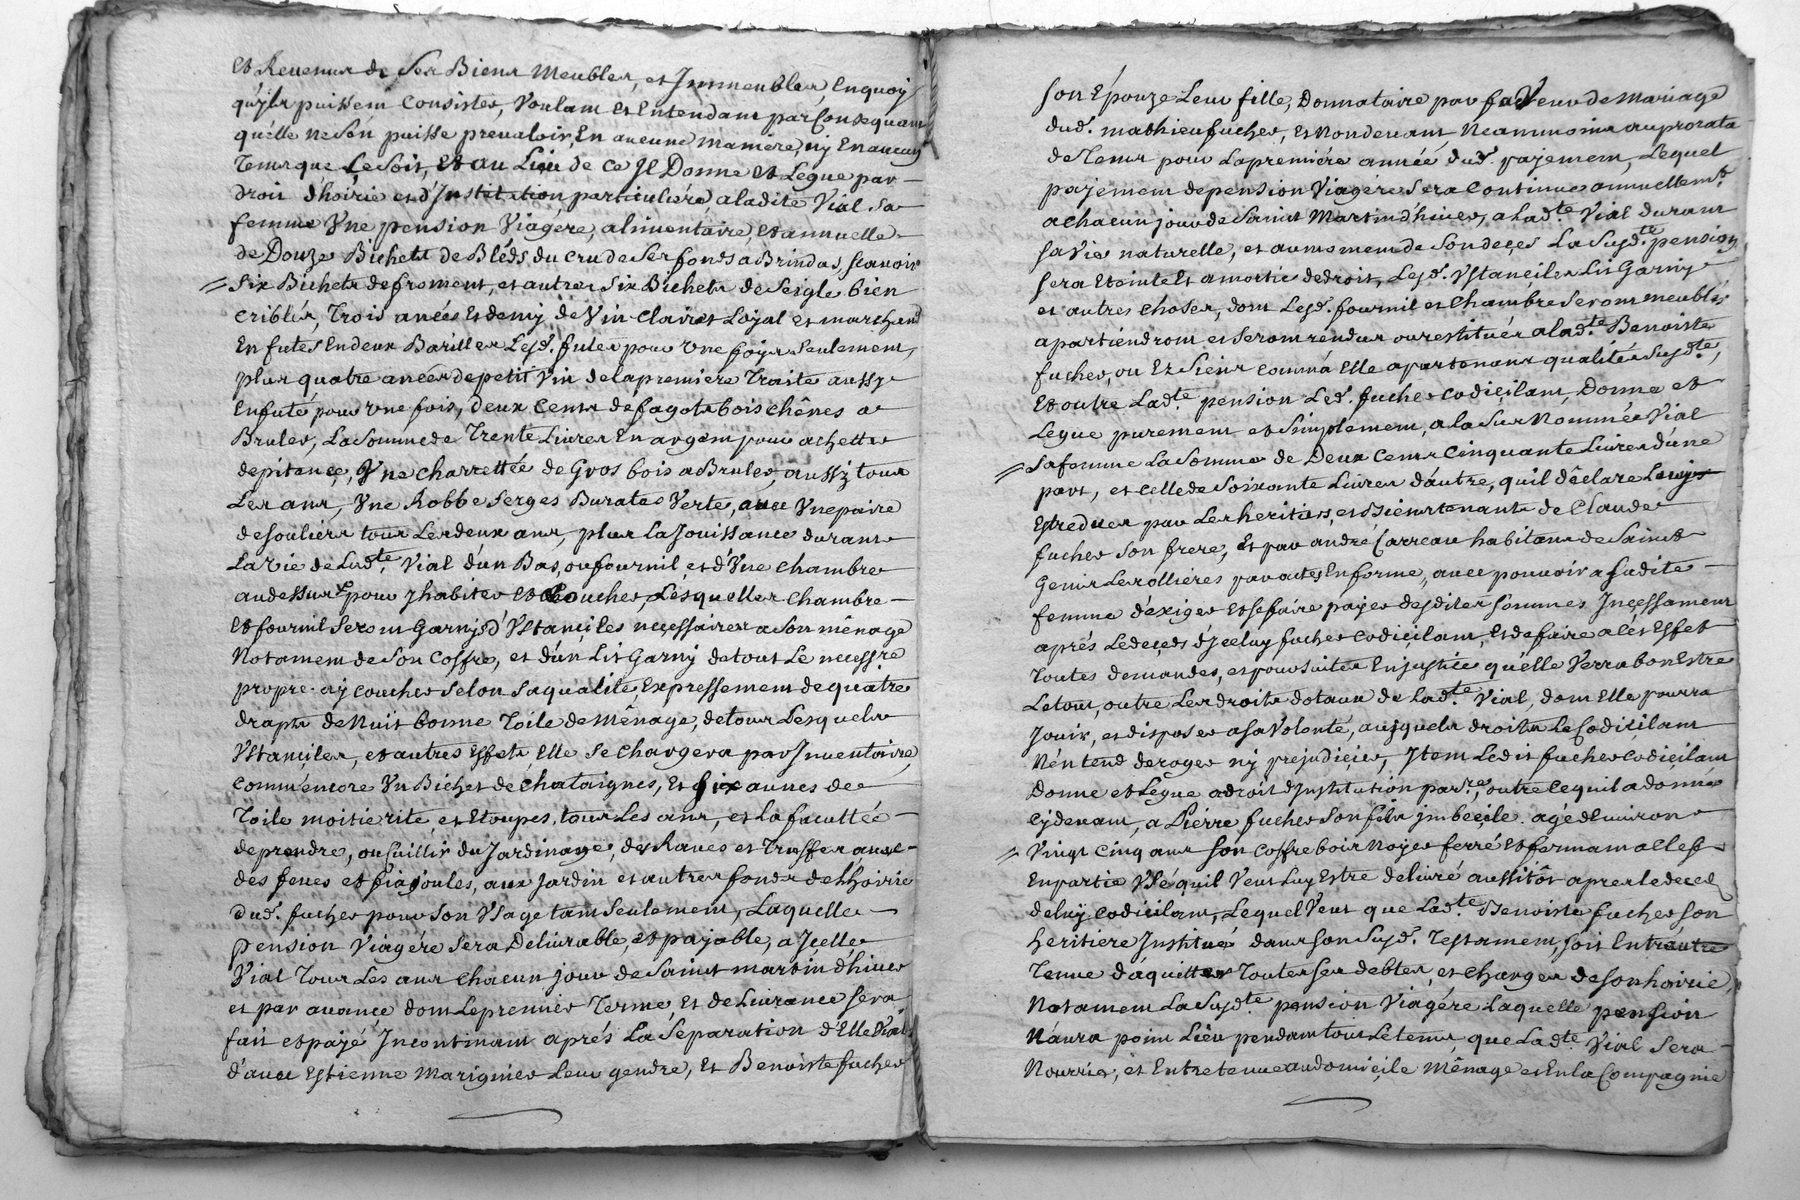 et Revenus de ses Biens Meubles, et Immeubles, Enquoy
qu'ils puissent Consister, Voulant et Entendant parConsequant
qu'elle ne s'en puisse prevaloir, En aucune maniere, ny En aucun
Temps que ce soit, et au Lieu de ce Il Donne et Legue par –
droit d'hoirie et d'Institution particuliére aladite Vial sa
femme Vne pension Viagére, alimentaire, et annuelle –
de Douze Bichets de Bléds du cru de ses fonds a Brindas, scavoir
= six Bichets de froment, et autres six Bichets de seigle bien
criblés, Trois anées et demy de Vin Clairet Loyal et marchand
En futés En deux Barilles Lesd. futes pour Vne foy seulement,
plus quatre anées de petit Vin de la premiere Traite aussy
Enfuté pour Vne fois, deux Cents de fagots bois chênes a
Bruler, La somme de Trente Livres En argent pour achetter
de pitance, Vne charrettée de Gros bois a Bruler, aussy tous
Les ans, Vne Robbe serges Burates Verte, avec Vne paire
de souliérs tous Les deux ans, plus La Jouissance durant
La Vie de Lad.te Vial d'un Bas, ou fournil, et d'Vne chambre
au dessus pour y habiter et Coucher, Lésquelles chambre –
et fournil seront Garnis d'Vstançiles neçessaires a son mênage
Notament de son Coffre, et d'un Lit Garny de tout Le necess.re
propre a y coucher selon sa qualité, Expressement de quatre
draps de Nuit bonne Toile de Mênage, de tous Lesquels
Vstançiles, et autres Effets Elle se chargera par Inventaire,
Comm'encore Vn Bichet de Chataignes, Et six aunes de
Toile moitie rite, et Etoupes, tous Les ans, et La facultée –
de prendre, ou Cuillir du Jardinage, des Raves et Truffes avec –
des feves et fiajoules, aux Jardin et autres fonds de L'hoirie
Dud. fucher pour son Vsage tant seulement, Laquelle –
pension Viagére sera Delivrable, et payable, a Icelle
Vial Tous Les ans Chacun jour de Saint martin d'hiver
et par avance dont Le premier Terme, Et de Livrance sera
fait et payé Incontinant aprés La Séparation d'Elle Vial
d'avec Estienne Marignier Leur gendre, Et Benoiste fucher
son Épouze Leur fille, Donnataire par faveur de Mariage
dud. mathieu fucher, et Nondevant Neammoins au prorata
de Tems pour La premiére année dud. payement, Lequel
payement de pension Viagére sera Continué annuellem.t
a chacun jour de Saint Martin d'hiver, a Lad.te Vial durant
sa Vie naturelle, et au moment de son deçes La Susd.te pension
sera Eteinte Et amortie de droit, Lesd. Vstançiles Lit Garny –
et autres choses, dont Lesd. fournil et Chambre seront meublés
apartiendront et seront rendus ou restitués a Lad.te Benoiste
fucher, ou Ez Siens comm'à Elle apartenans qualitée Susd.te,
Et outre Lad.te pension Led. fucher Codiçilant, Donne et
Legue purement et Simplement, a La Sus Nommée Vial
= sa femme La somme de Deux Cents Cinquante Livres d'une
part, et Celle de Soixante Livres d'autre, quil déclare Leurs
Estre dues par Les heritiers, et biens tenants de Claude
fucher son frere, et par andré Carreau habitant de Saint
Genis Les ollieres par actes En forme, avec pouvoir a sadite –
femme d'éxiger et se faire payer desdites sommes Inçessament
aprés Le deçes d'Içeluy fucher Codiçilant, Et de faire a Cés Effet
Toutes demandes, et poursuites En justice qu'elle Verra bon Estre
Le tout, outre Les droits dotaux de Lad.te Vial, dont Elle pourra
Jouir, et disposer a sa Volonté, ausquels droits Le Codicilant
N'entend deroger ny préjudicier, Item Ledit fucher Codiçilant
Donne et Légue a droit d'Institution par.re, outre Ce quil a donné
Cy devant, a Pierre fucher son fils imbecile agé d'environ
= Vingt Cinq ans son Coffre bois Noyer ferré et fermant a Clef
En partie Vsé quil Veut Luy Estre delivré aussitôt apres Le deces
deluy Codicilant, Lequel Veut que Lad.te Benoiste fucher son
heritiere Instituée dans son Susd. Testament, soit Entr'autre
Tenue d'áquitter Toutes ses debtes, et Charges de son hoirie,
Notament La Susd.te pension Viagére Laquelle pension
N'aura point Liéu pendant tout Le tems que Lad.te Vial sera –
Nourrie, et Entretenue au domicile Mênage et En la Compagnie